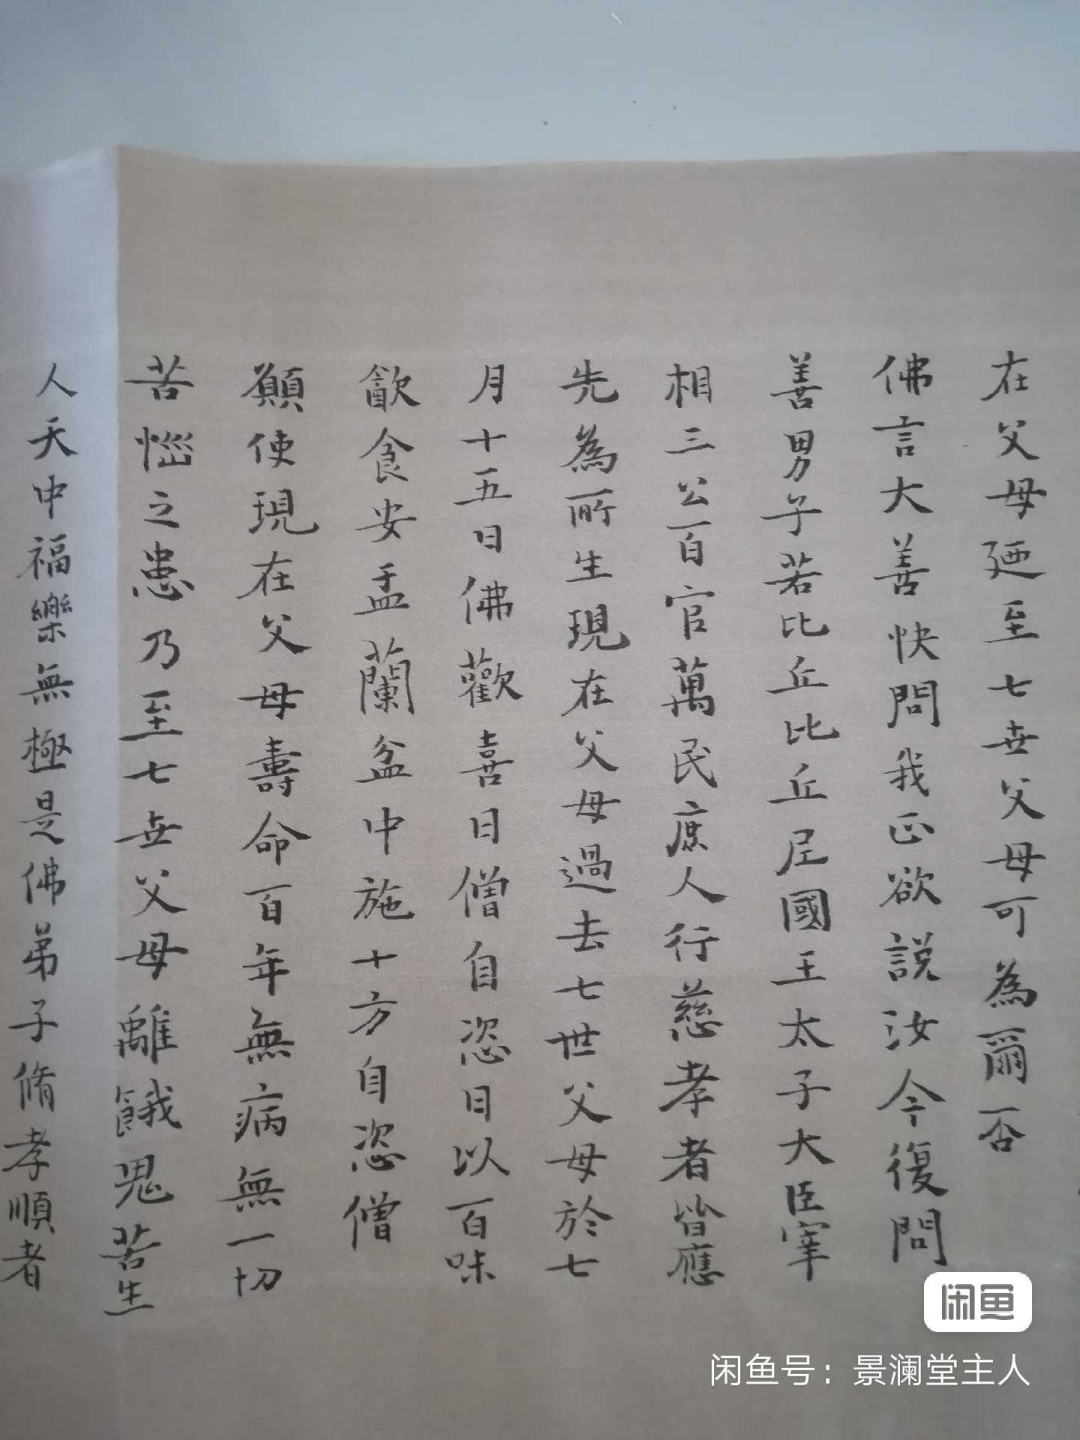 在父母廼至七世父母可為爾否
佛言大善快問我正欲說汝今復問
善男子若比丘比丘尼國王太子大臣宰
相三公百官萬民庶人行慈孝者皆應
先為所生現在父母過去七世父母於七
月十五日佛歡喜日僧自恣日以百味
飲食安盂蘭盆中施十方自恣僧
願使現在父母壽命百年無病無一切
苦惱之患乃至七世父母離餓鬼苦生
人天中福樂無極是佛弟子脩孝順者
闲鱼
闲鱼号：景澜堂主人